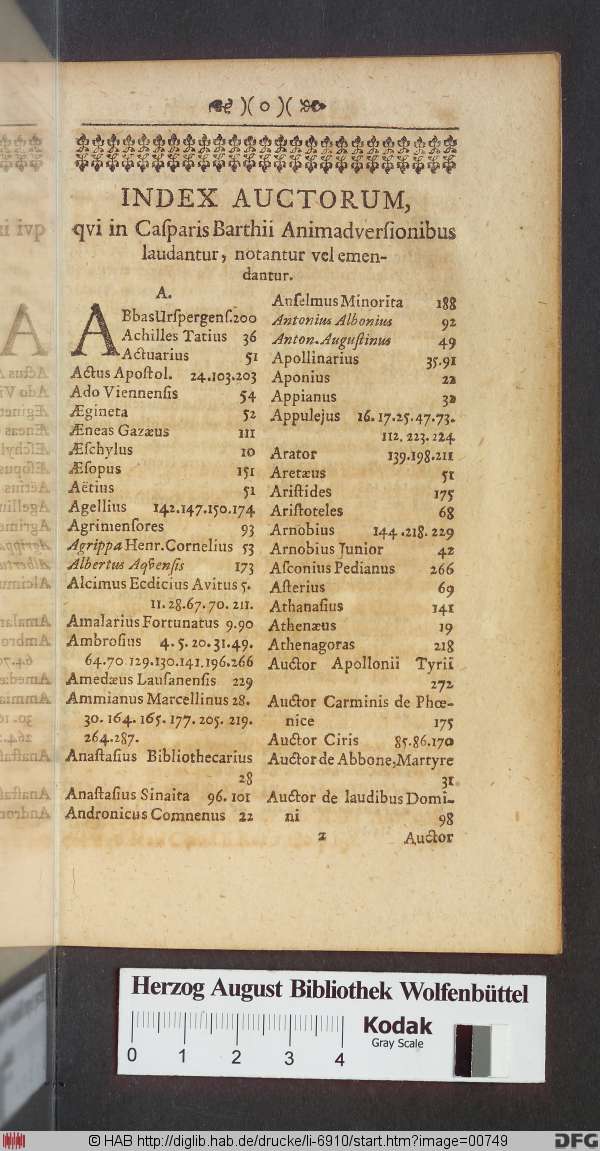 )( o )(
INDEX AUCTORUM,
qvi in Caſparis Barthii Animadverſionibus
laudantur, notantur vel emen-
dantur.
A.
ABbasUrſpergenſ.200
Achilles Tatius 36
Actuarius 51
Actus Apoſtol. 24.103.203
Ado Viennenſis 54
Ægineta 52
Æneas Gazæus 111
Æſchylus 10
Æſopus 151
Aëtius 51
Agellius 142.147.150.174
Agrimenſores 93
Agrippa Henr.Cornelius 53
Albertus Aqvenſis 173
Alcimus Ecdicius Avitus 5.
11. 28.67.70. 211.
Amalarius Fortunatus 9.90
Ambroſius 4. 5. 20. 31.49.
64.70 129.130.141.196.266
Amedæus Lauſanenſis 229
Ammianus Marcellinus 28.
30. 164. 165. 177. 205. 219.
264.287.
Anaſtaſius Bibliothecarius
28
Anaſtaſius Sinaita 96. 101
Andronicus Comnenus 22
Anſelmus Minorita 188
Antonius Albonius 92
Anton. Auguſtinus 49
Apollinarius 35.91
Aponius 22
Appianus 32
Appulejus 16.17.25.47.73.
112. 223. 224
Arator 139.198.211
Aretæus 51
Ariſtides 175
Ariſtoteles 68
Arnobius 144.218.229
Arnobius Junior 42
Aſconius Pedianus 266
Aſterius 69
Athanaſius 141
Athenæus 19
Athenagoras 218
Auctor Apollonii Tyrii
272
Auctor Carminis de Phœ-
nice 175
Auctor Ciris 85.86.170
Auctor de Abbone,Martyre
31
Auctor de laudibus Domi-
ni 98
2 Auctor
Herzog August Bibliothek Wolfenbüttel
0 1 2 3 4
Kodak
Gray Scale
© HAB http://diglib.hab.de/drucke/li-6910/start.htm?image=00749
DFG